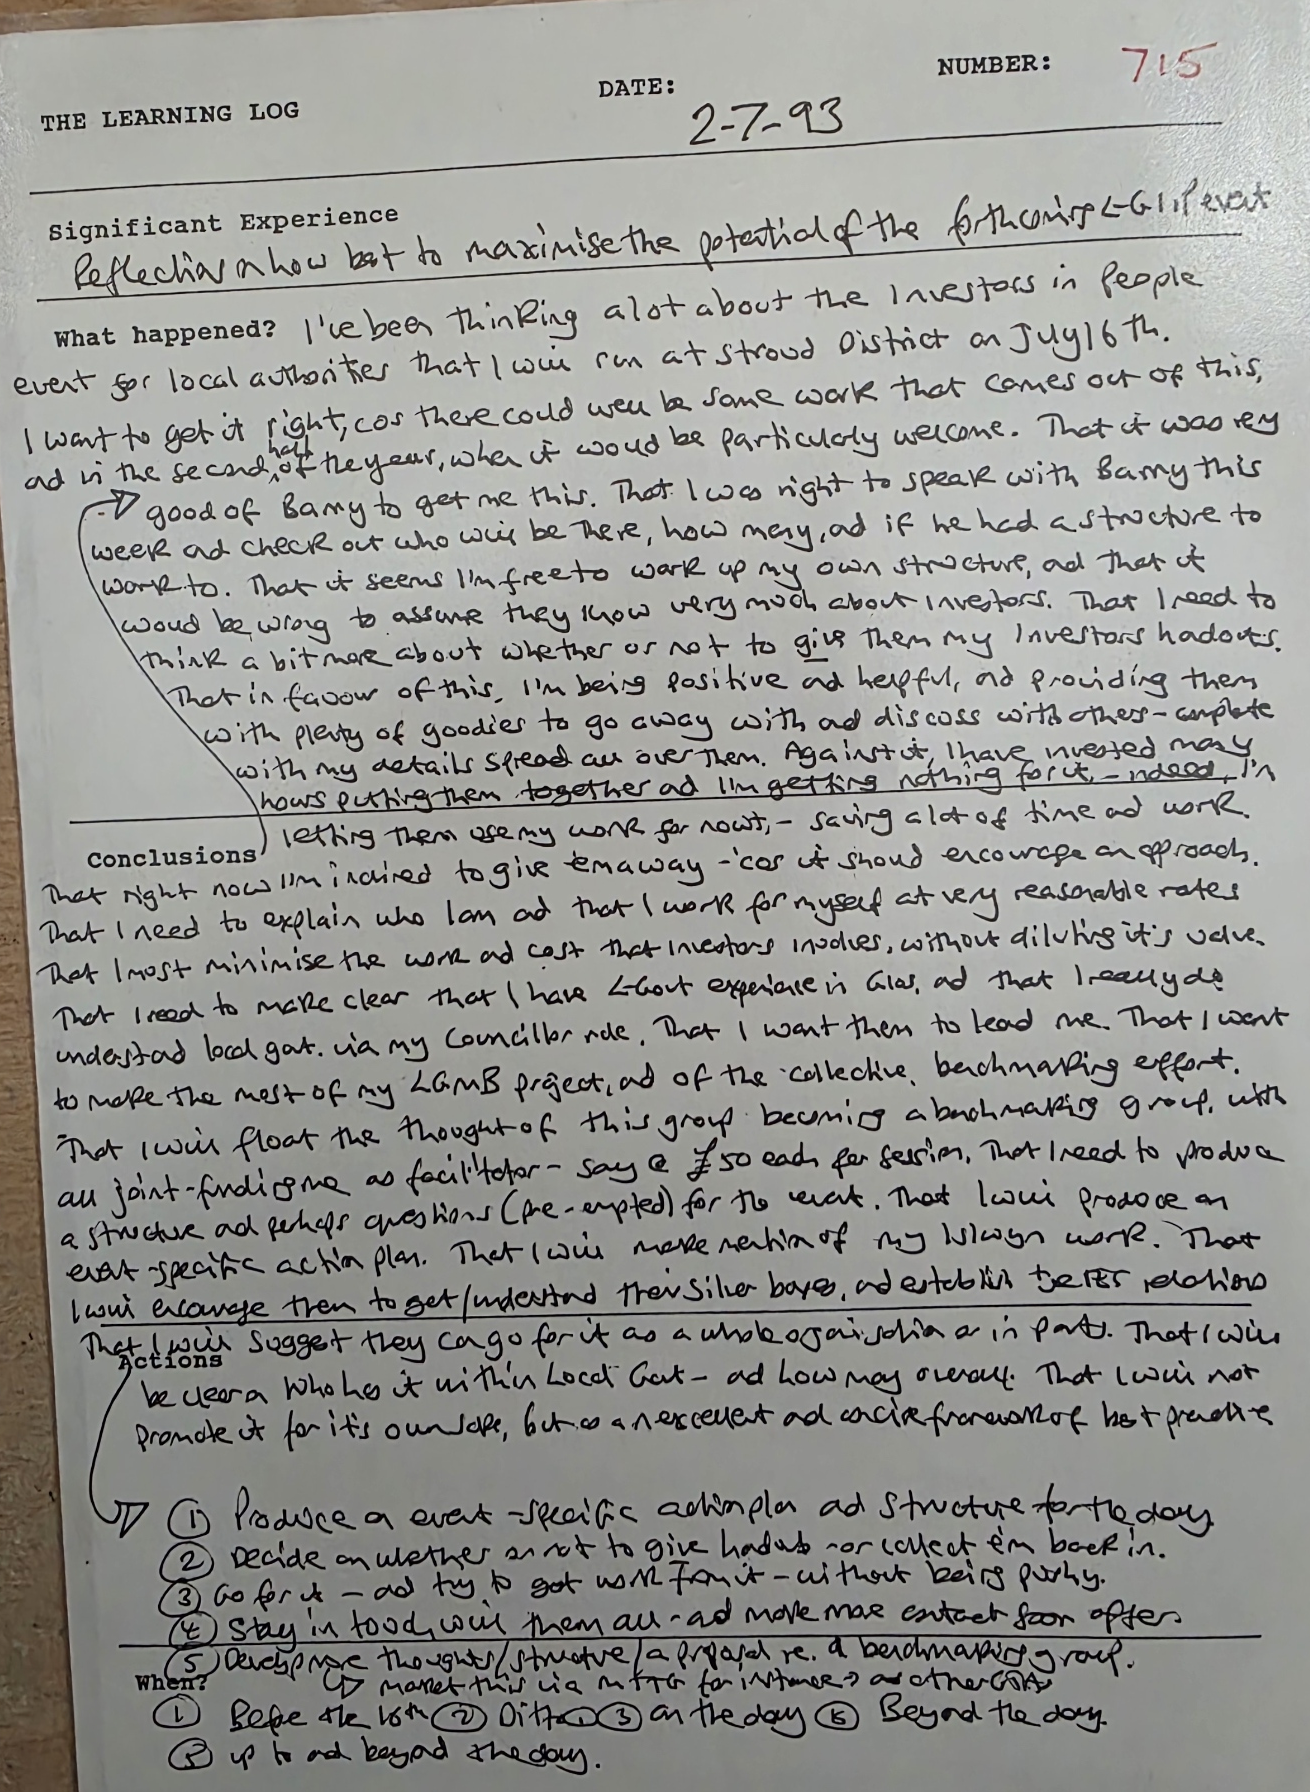 THE LEARNING LOG DATE: 2-7-93 NUMBER: 715
Significant Experience
Reflections on how best to maximise the potential of the forthcoming L-G I.I.P event
What happened? I've been thinking a lot about the Investors in People
event for local authorities that I will run at Stroud District on July 16th.
I want to get it right, cos there could well be some work that comes out of this,
ad in the second half of the year, when it would be particularly welcome. That it was very
good of Barry to get me this. That I was right to speak with Barry this
week ad check out who will be there, how many, ad if he had a structure to
work to. That it seems I'm free to work up my own structure, ad that it
would be wrong to assume they know very much about investors. That I need to
think a bit more about whether or not to give them my Investors hadouts.
That in favour of this, I'm being positive ad helpful, ad providing them
with plenty of goodies to go away with ad discuss with others - complete
with my details spread all over them. Against it, I have invested many
hours putting them together ad I'm getting nothing for it, - indeed, I'm
letting them use my work for nowt, - saving a lot of time ad work.
Conclusions
That right now I'm inclined to give 'em away - 'cos it should encourage an approach.
That I need to explain who I am ad that I work for myself at very reasonable rates
That I must minimise the work ad cost that Investors involves, without diluting it's value.
That I need to make clear that I have L-Govt experience in Glos, ad that I really do
understad local govt. via my Councillor role. That I want them to lead me. That I want
to make the most of my LGMB project, ad of the collective benchmarking effort.
That I will float the thought of this group becoming a benchmarking group, with
all joint-funding me as facilitator - say @ £50 each per session. That I need to produce
a structure ad perhaps questions (pre-empted) for the event. That I will produce an
event-specific action plan. That I will make mention of my Islwyn work. That
I will encourage them to get/understad their silver boxes, ad establish better relations
That I will suggest they can go for it as a whole organisation or in parts. That I will
Actions
be clear on who has it within Local Govt - ad how many overall. That I will not
promote it for it's own sake, but as an excellent ad concise framework of best practice
① Produce an event-specific action plan ad structure for the day
② Decide on whether or not to give hadouts - or collect 'em back in.
③ Go for it - ad try to get work from it - without being pushy.
④ Stay in touch with them all - ad make more contact soon after.
⑤ Develop more thoughts/structure/a proposal re. a benchmarking group.
When? market this via MTTG for instance
① Before the 16th ② Ditto ③ on the day ④ Beyond the day.
⑤ up to ad beyond the day.